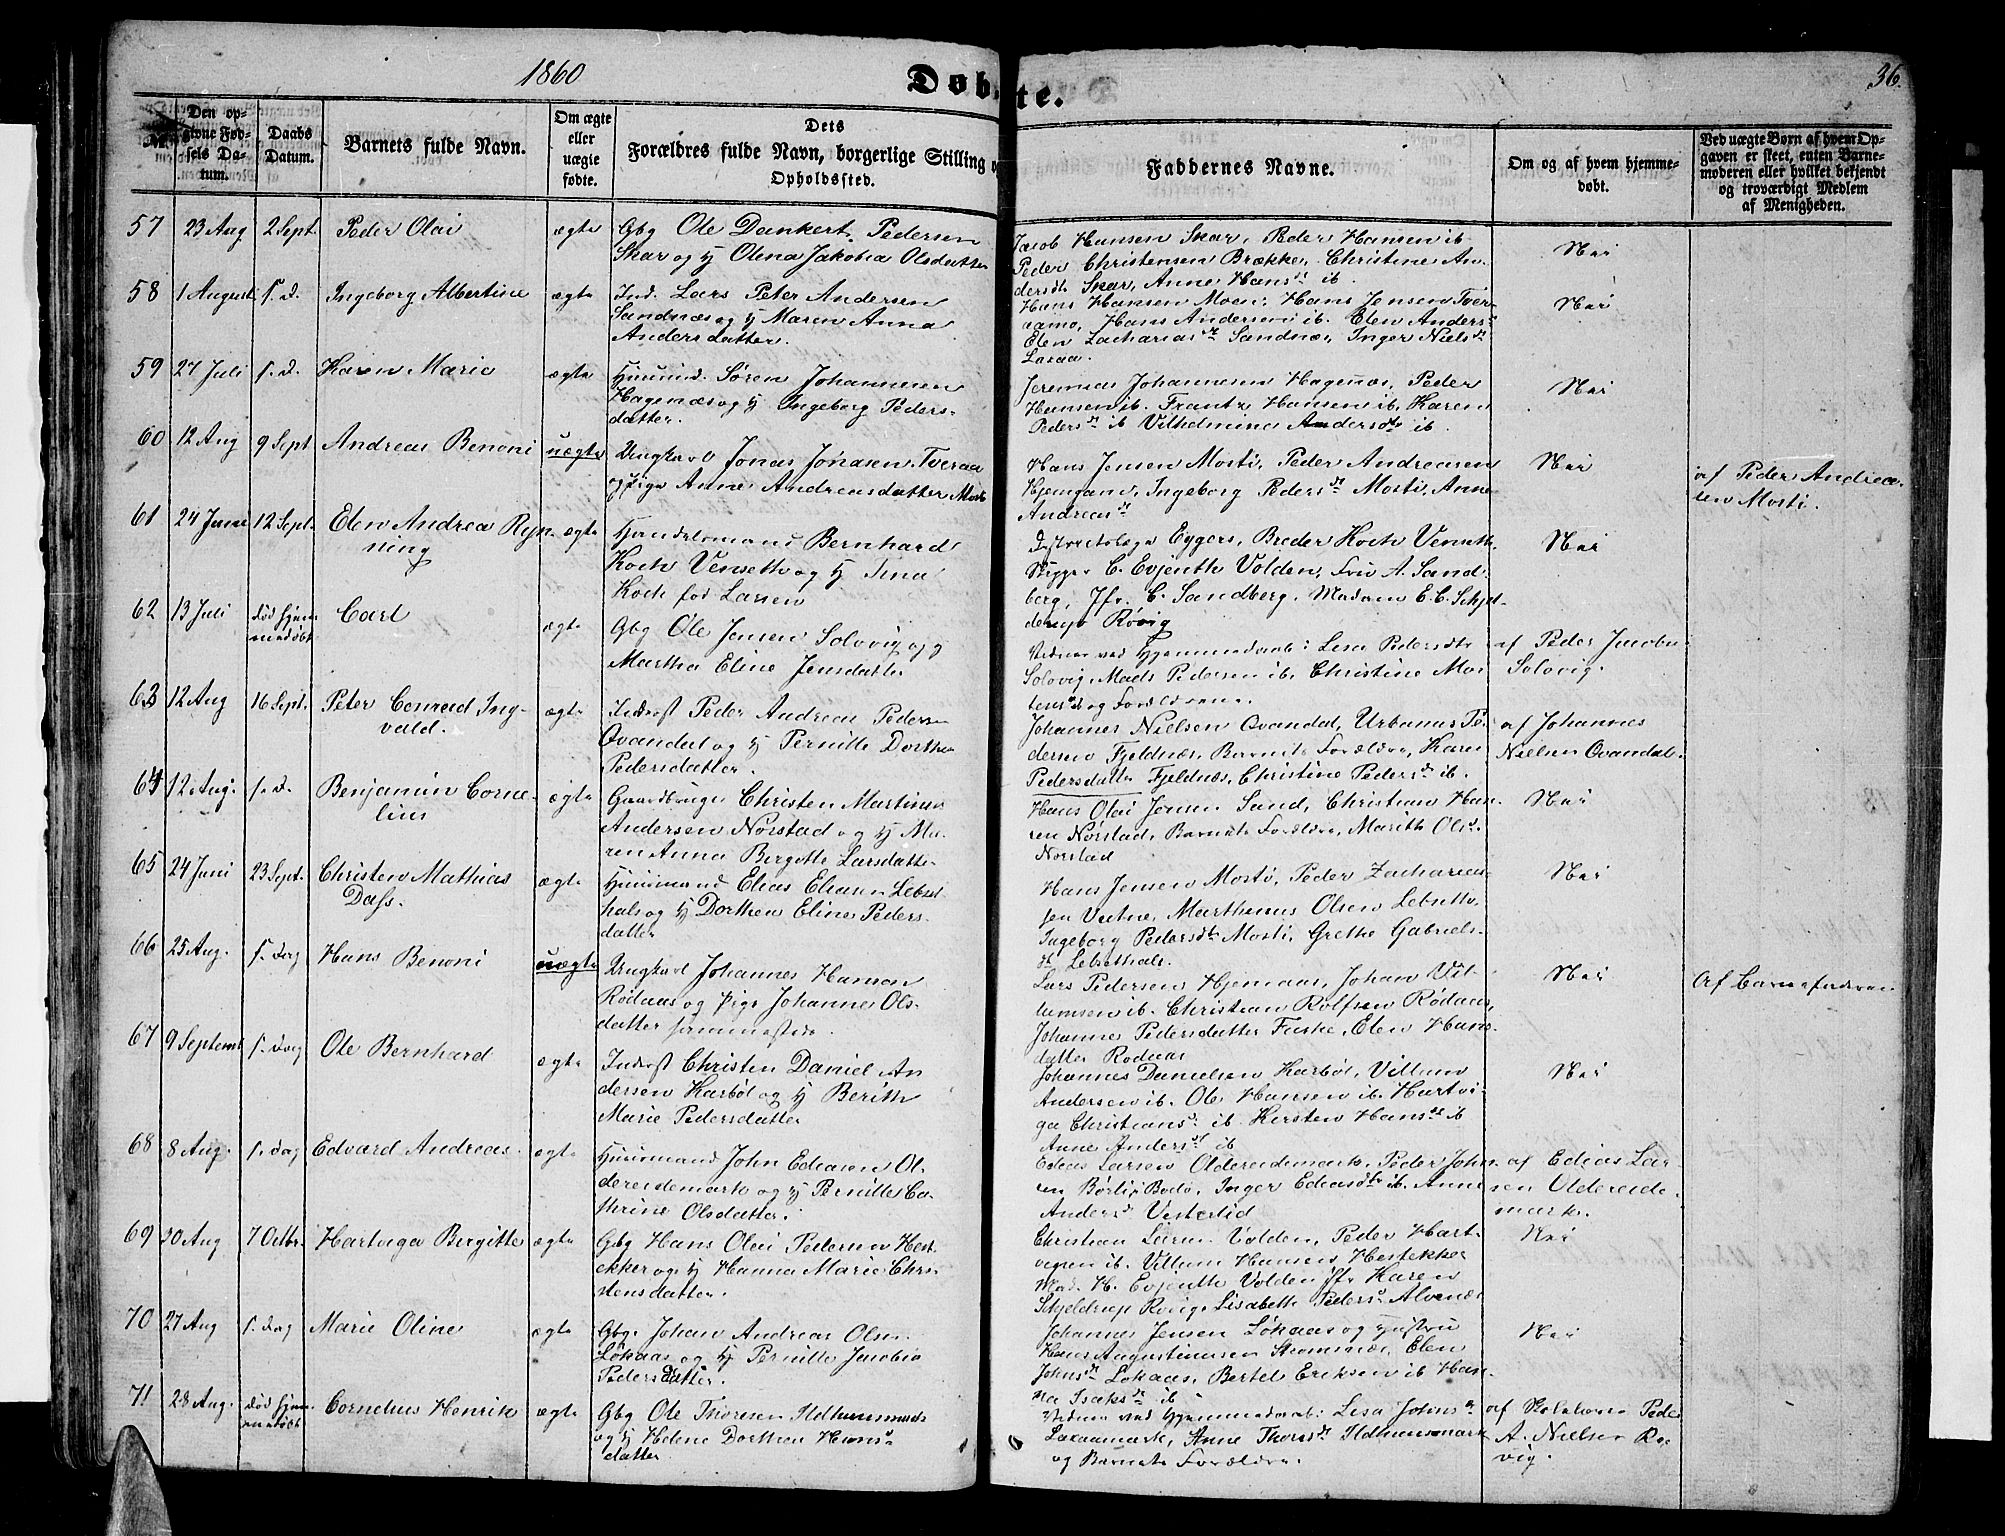 1860
Døbte.
36.
№
Den opgivne Fødsels Datum.
Daabs Datum.
Barnets fulde Navn.
Om ægte eller uægte fødte.
Dets Forældres fulde Navn, borgerlige Stilling og Opholdssted.
Faddernes Navne.
Om og af hvem hjemmedøbt.
Ved uægte Børn af hvem Opgaven er skeet, enten Barnemoderen eller hvilket bekjendt og troværdigt Medlem af Menigheden.
57 23 Aug 2 Sept Peder Olai ægte Gbg Ole Dankert Pedersen
Skar og H Olena Jakobia Olsdatter
Jacob Hansen Skar, Peder Hansen ib
Peder Christensen Brække, Christine An
dersdt Skar, Anne Hansdt ib.
Nei
58 1 August s. D. Ingeborg Albertine ægte Ind. Lars Peter Andersen
Sandnæs og H Maren Anna
Andersdatter.
Hans Hansen Moen, Hans Jensen Tver
aamo, Hans Andersen ib. Elen Andersdt
Elen Zachariasdt Sandnæs, Inger Nielsdt
Laxaa.
Nei
59 27 Juli s. D. Karen Marie ægte Huusmd. Søren Johannesen
Hagenæs og H Ingeborg Peders-
datter.
Jeremias Johannesen Hagenæs, Peder
Hansen ib. Frantz Hansen ib. Karen
Pedersdt ib Vilhelmine Andersdtr ib.
Nei
60 12 Aug 9 Sept Andreas Benoni uægte Ungkarl Jonas Jonasen Tveraa
og Pige Anne Andreasdatter Mosti
Hans Jensen Mosti, Peder Andreasen
Hjemgam, Ingeborg Pedersdt Mosti, Anne
Andreasdt
Nei
af Peder Andrea-
sen Mosti.
61 24 Juni 12 Sept. Elen Andrea Ryn-
ning
ægte Handelsmand Bernhard
Koch Vensett og H Jena
Koch fød Larsen
Districtslæge Eggers, Breder Koch Vensett,
Skipper C. Evjenth Volden, Fru A. Sand
berg, Jfr. C. Sandberg, Madam E. C. Schjel
derup Røvig
Nei
62 13 Juli død hjem
medøbt
Carl ægte Gbg Ole Jensen Solovig og H
Martha Eline Jensdatter
Vidner ved Hjemmedaab: Lisa Pedersdtr
Solovig, Mads Pedersen ib. Christine Mor
tensdt og Forældrene.
af Peder Jacobs.
Solovig.
63 12 Aug 16 Sept. Peter Conrad Ing-
vald.
ægte Inderst Peder Andrea Peders
Qvandal og H Pernille Dorthea
Pedersdatter.
Johannes Nielsen Qvandal, Urbanus Pe
dersen Fjeldnæs, Barnets Forældre, Karen
Pedersdatter Fjeldnæs, Christine Pedersdt ib.
af Johannes
Nielsen Qvandal
64 12 Aug. s. D. Benjamin Corne-
lius
ægte Gaardbruger Christen Martinus
Andersen Nørstad og H Ma-
ren Anna Bergette Larsdatter
Hans Olai Jensen Sand, Christian Han
sen Nørstad, Barnets Forældre, Marith Olsdt
Nørstad
Nei
65 24 Juni 23 Sept. Christen Mathias
Dass.
ægte Huusmand Elias Eliasen Lebset
hals og H Dorthea Eline Peders
datter
Hans Jensen Mosti, Peder Zacharias
sen Vatne, Marthinus Olsen Lebseth.
Ingeborg Pedersdtr Mosti, Grethe Gabriels-
dt Lebsethals.
Nei
66 25 Aug. s. Dag Hans Benoni uægte Ungkarl Johannes Hanson
Rødaas og Pige Johanne Ols-
datter sammesteds.
Lars Pedersen Hjemaas, Johan Vil-
lumsen ib. Christian Rolfsen Rødaas,
Johanne Pedersdatter Fuske, Elen Hans
datter Rødaas
Nei
Af Barnefaderen
67 9 Septemb s. Dag Ole Bernhard ægte Inderst Christen Daniel An
dersen Karbøl og H Berith
Marie Pedersdatter
Johannes Danielsen Karbøl, Villum
Andersen ib. Ole Hansen ib. Hartvi-
ga Christiansdt ib. Kirsten Hansdt ib
Anne Andersdt ib
Nei
68 8 Aug. s. Dag Edvard Andreas. ægte Huusmand John Eliasen Ol-
dereidemark og H Pernille Ca-
thrine Olsdatter.
Edias Larsen Oldereidemark, Peder John
sen Børlix Bodø, Inger Ediasdtr ib. Anne
Andersdt Vesterlid
af Edias Lar-
sen Oldereide-
mark.
69 20 Aug 7 Octbr. Hartviga Bergitte ægte Gbg Hans Olai Pedersen Hest
ekker og H Hanna Marie Chris
tensdatter.
Christian Volden, Peder Hart
vigsen ib. Villum Hansen Hestekker
Mad. H. Evjenth Volden Jfr Karen
Schjeldrup Røvig, Lisabeth Pedersdt Alvenæs
Nei
70 27 Aug s. Dag Marie Oline ægte Gbg. Johan Andreas Olsen
Løkaas og H Pernille Jacobia
Pedersdatter.
Johannes Jensen Løkaas og Hustru
Hans Augustinussen Strømsnæs, Elen
Johnsdt Løkaas, Bertel Eriksen ib Han
na Isaksdt ib
Nei
71 28 Aug. død hjem
medøbt
Cornelius Henrik ægte Gbg Ole Thoresen Ildhuusmark
og H Helene Dorthea Hans-
datter
Vidner ved Hjemmedaab: Lisa Johnsdt
Laxaamark, Anne Thorsdt Ildhuusmark
og Barnets Forældre.
af Skolelærer Peder
A. Nielsen Rø-
vig.